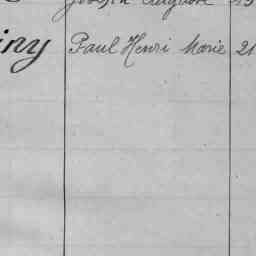 Joseph
iny Paul Henri Marie 21